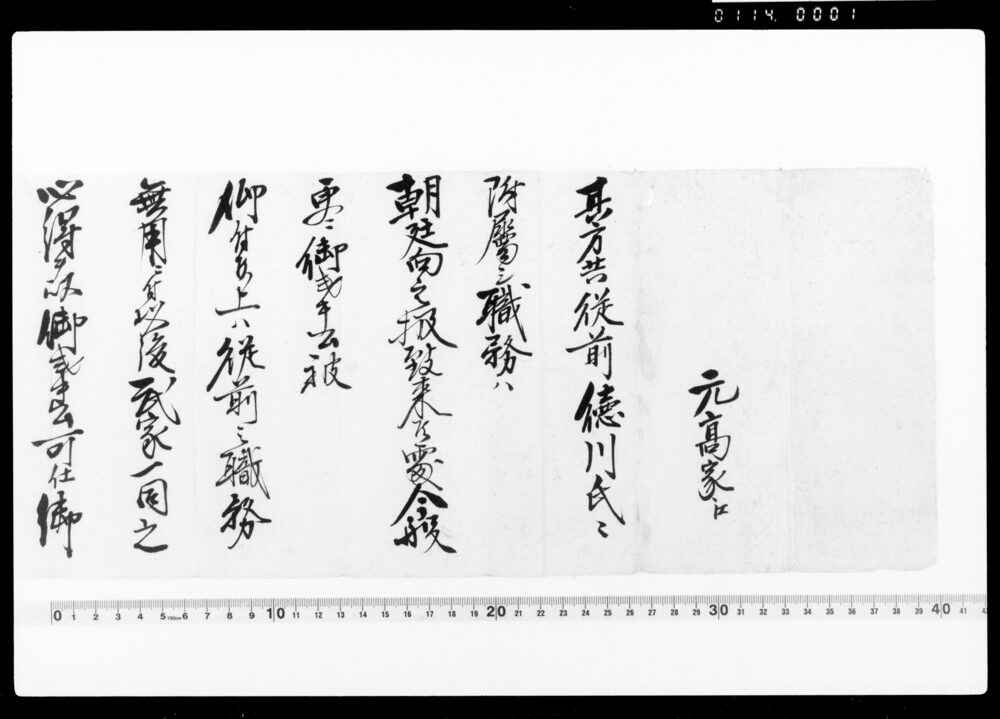 0114. 0001
元高家江
其方共従前徳川氏ニ
附屬之職務ハ
朝廷向之扱致来候處今般
更ニ御直ニ被
御付候上ハ従前之職務
無用ニ付以後武家一同之
心得を以御直ニ可仕御
0 1 2 3 4 5 150cm 6 7 8 9 10 11 12 13 14 15 16 17 18 19 20 21 22 23 24 25 26 27 28 29 30 31 32 33 34 35 36 37 38 39 40 41 42